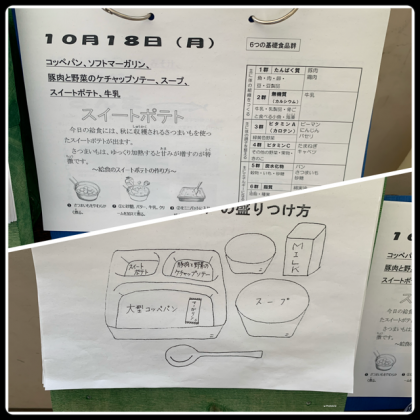 10月18日（月）
コッペパン、ソフトマーガリン、
豚肉と野菜のケチャップソテー、スープ、
スイートポテト、牛乳
スイートポテト
今日の給食には、秋に収穫されるさつまいもを使っ
たスイートポテトが出ます。
さつまいもは、ゆっくり加熱すると甘みが増すのが特
徴です。
～給食のスイートポテトの作り方～
6つの基礎食品群
1群 たんぱく質
豚肉
鶏肉
2群 無機質
（カルシウム）
牛乳
3群 ビタミンA
（カロテン）
緑黄色野菜
ピーマン
にんじん
パセリ
4群 ビタミンC
その他の野菜・果物・
きのこ
たまねぎ
キャベツ
5群 炭水化物
パン
さつまいも
砂糖
6群 脂質
の盛りつけ方
スイート
ポテト
豚肉と野菜の
ケチャップソテー
大型コッペパン
MILK
スープ
コッペパ
豚肉と野
スイート